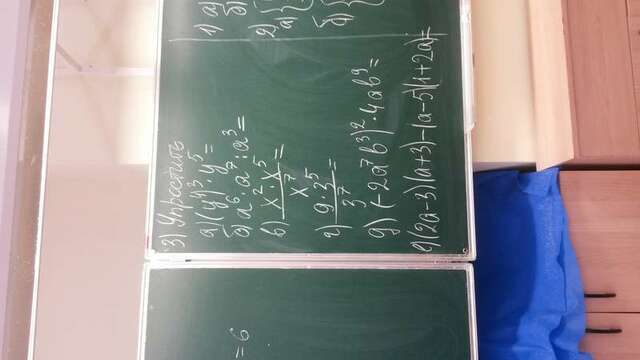 = 6
3) Упростить
а) (y⁴)³ · y⁵ =
б) a⁶ · a⁷ : a³ =
в) x² · x⁵ / x⁷ =
г) 9 · 3⁵ / 3⁷ =
д) (-2a⁷b³)² · 4ab⁹ =
е) (2a-3)(a+3)-(a-5)(1+2a) =
1) а)
б)
2)
а) {
б) {